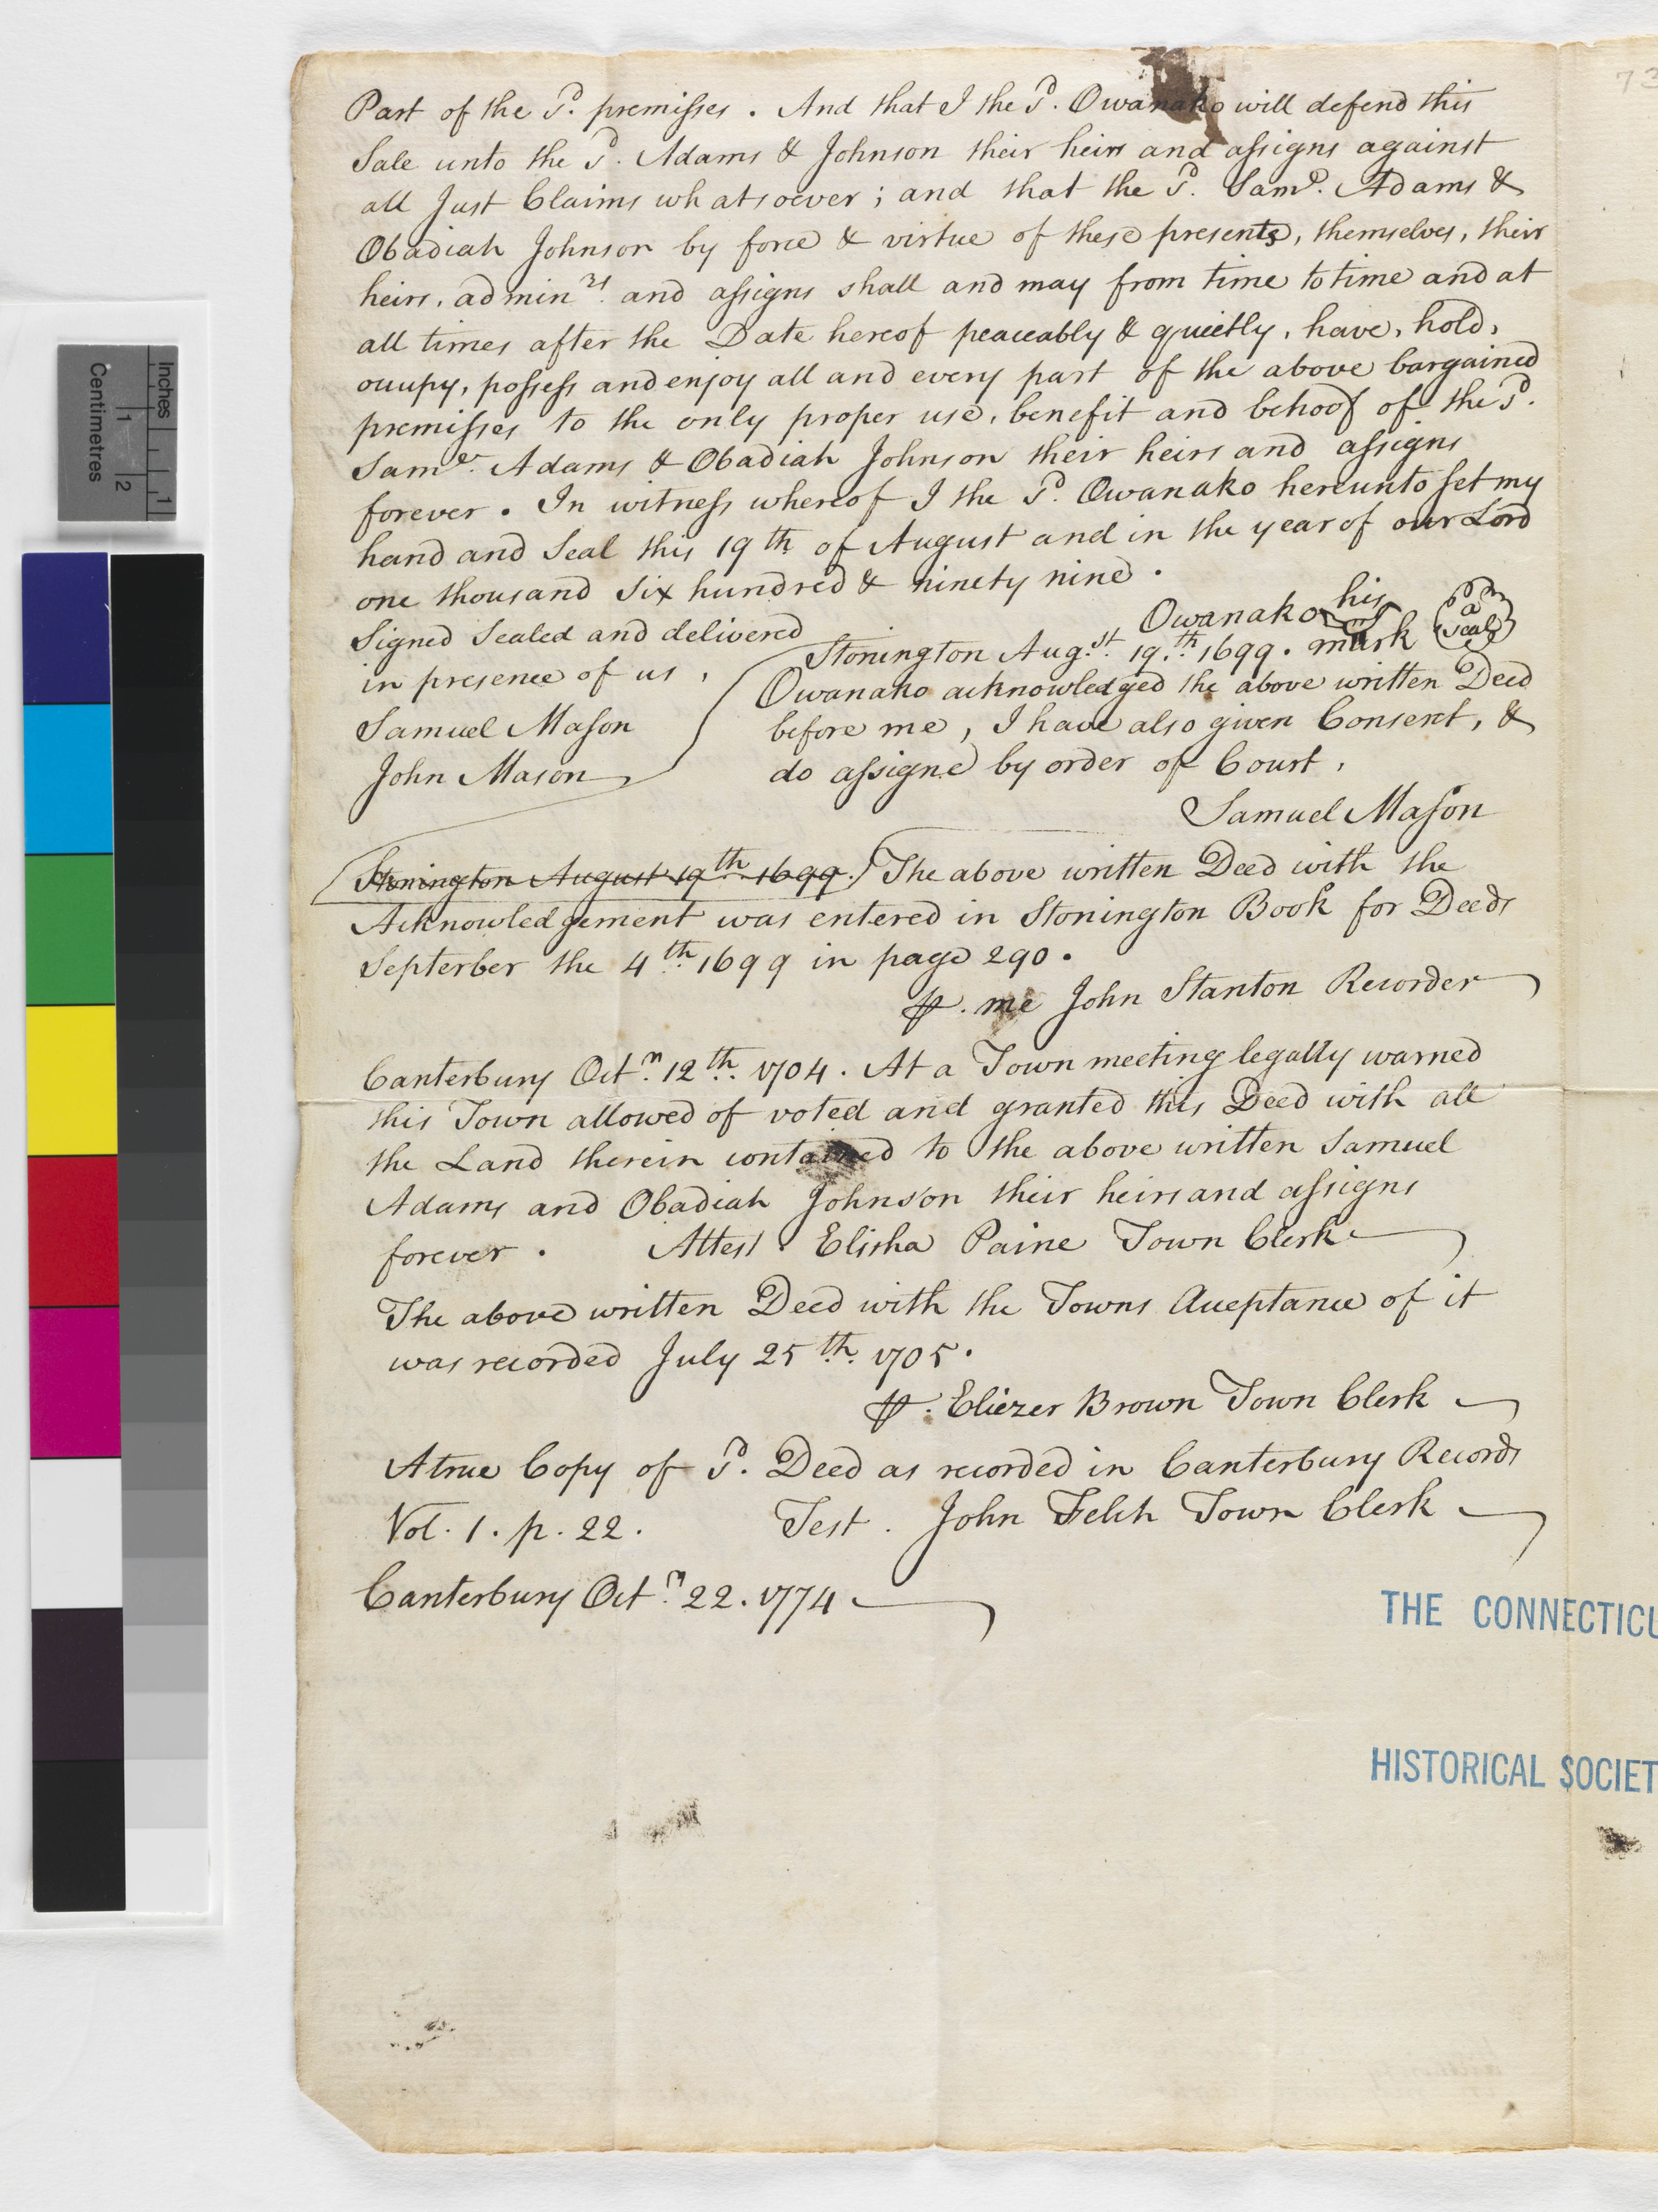 Part of the Sd. premisses. And that I the Sd. Owanako will defend this
Sale unto the Sd. Adams & Johnson their heirs and assigns against
all Just Claims whatsoever; and that the Sd. Saml. Adams &
Obadiah Johnson by force & virtue of these presents, themselves, their
heirs, adminrs. and assigns shall and may from time to time and at
all times after the Date hereof peaceably & quietly, have, hold,
occupy, possess and enjoy all and every part of the above bargained
premisses to the only proper use, benefit and behoof of the Sd.
Saml. Adams & Obadiah Johnson their heirs and assigns
forever. In witness whereof I the Sd. Owanako hereunto set my
hand and Seal this 19th of August and in the year of our Lord
one thousand Six hundred & ninety nine.
Owanako his mark a seal
Signed Sealed and delivered
in presence of us,
Samuel Mason
John Mason
Stonington Augst. 19th. 1699.
Owanako acknowledged the above written Deed
before me, I have also given Consent, &
do assigne by order of Court,
Samuel Mason
Stonington August 19th 1699. The above written Deed with the
Acknowledgement was entered in Stonington Book for Deeds
Septerber the 4th. 1699 in page 290.
℔. me John Stanton Recorder
Canterbury Octr. 12th. 1704. At a Town meeting legally warned
this Town allowed of voted and granted this Deed with all
the Land therein contained to the above written Samuel
Adams and Obadiah Johnson their heirs and assigns
forever. Attest. Elisha Paine Town Clerk
The above written Deed with the Towns Acceptance of it
was recorded July 25th. 1705.
℔. Eliezer Brown Town Clerk
A true Copy of Sd. Deed as recorded in Canterbury Records
Vol. 1. p. 22. Test. John Felch Town Clerk
Canterbury Octr. 22. 1774
THE CONNECTICU
HISTORICAL SOCIET
73
Inches
1
Centimetres
1 2